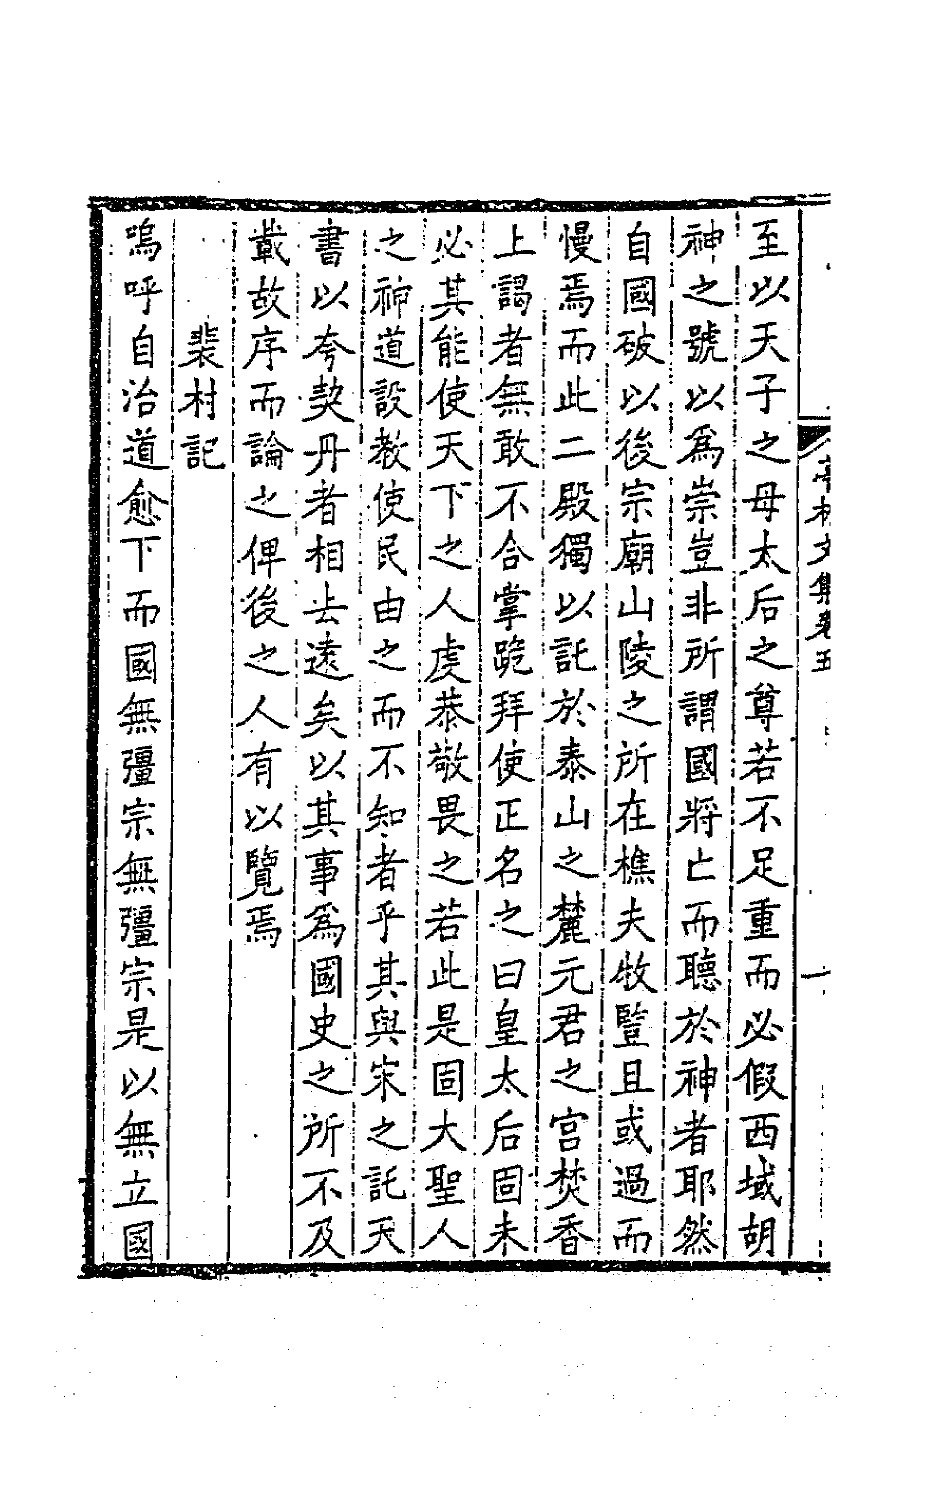 亭林文集卷五
一
至以天子之母太后之尊若不足重而必假西域胡
神之號以爲崇豈非所謂國將亡而聽於神者耶然
自國破以後宗廟山陵之所在樵夫牧豎且或過而
慢焉而此二殿獨以託於泰山之麓元君之宫焚香
上謁者無敢不合掌跪拜使正名之曰皇太后固未
必其能使天下之人虔恭敬畏之若此是固大聖人
之神道設教使民由之而不知者乎其與宋之託天
書以夸契丹者相去遠矣以其事爲國史之所不及
載故序而論之俾後之人有以覽焉
裴村記
嗚呼自治道愈下而國無彊宗無彊宗是以無立國